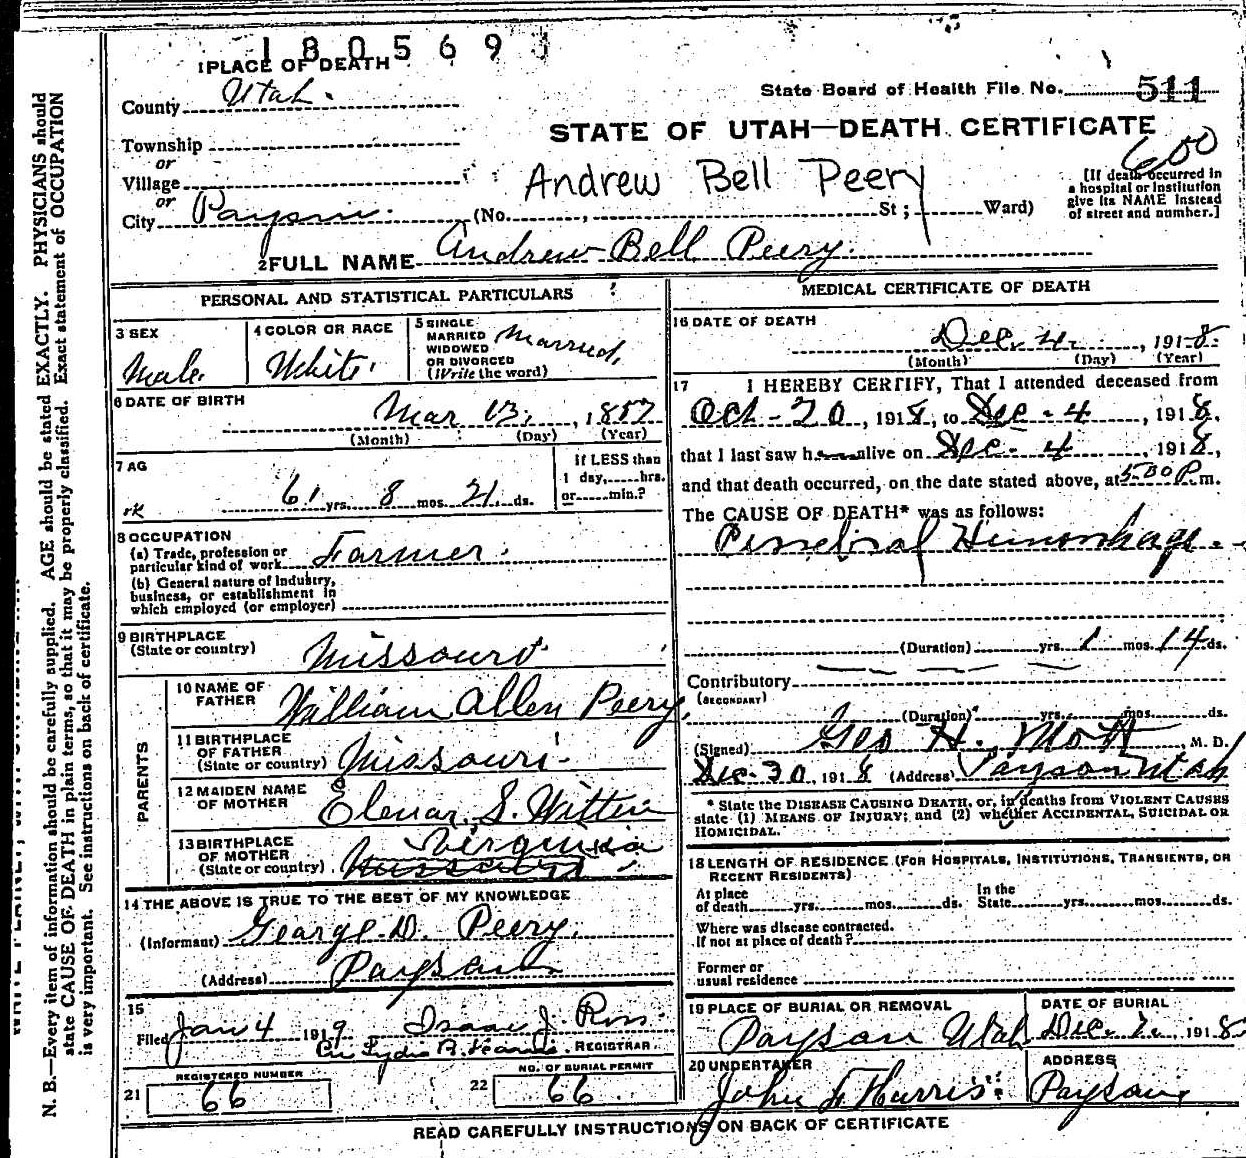 180569
1 PLACE OF DEATH
County Utah.
State Board of Health File No. 511
STATE OF UTAH—DEATH CERTIFICATE
Township
or
Village
or
City Payson. (No. , St; Ward)
Andrew Bell Peery
600
[If death occurred in
a hospital or institution
give its NAME instead
of street and number.]
2 FULL NAME Andrew Bell Peery.
PERSONAL AND STATISTICAL PARTICULARS
3 SEX
Male.
4 COLOR OR RACE
White.
5 SINGLE
MARRIED
WIDOWED
OR DIVORCED
(Write the word)
Married.
6 DATE OF BIRTH
Mar 13, 1857
(Month) (Day) (Year)
7 AG
61 yrs. 8 mos. 21 ds.
If LESS than
1 day, hrs.
or min.?
8 OCCUPATION
(a) Trade, profession or
particular kind of work Farmer.
(b) General nature of Industry,
business, or establishment in
which employed (or employer)
9 BIRTHPLACE
(State or country) Missouri.
PARENTS
10 NAME OF
FATHER William Allen Peery,
11 BIRTHPLACE
OF FATHER
(State or country) Missouri.
12 MAIDEN NAME
OF MOTHER Elenar. S. Witten
13 BIRTHPLACE
OF MOTHER
(State or country) Virginia
14 THE ABOVE IS TRUE TO THE BEST OF MY KNOWLEDGE
(Informant) George D. Peery.
(Address) Payson
15
Filed Jan 4 1919 Isaac J. Ross
Per Lydia R. REGISTRAR.
REGISTERED NUMBER
21 66
NO. OF BURIAL PERMIT
22 66.
MEDICAL CERTIFICATE OF DEATH
16 DATE OF DEATH
Dec. 4. , 1918.
(Month) (Day) (Year)
17 I HEREBY CERTIFY, That I attended deceased from
Oct-20, 1918, to Dec-4, 1918.
that I last saw h alive on Dec. 4, 1918,
and that death occurred, on the date stated above, at 5:30 P. m.
The CAUSE OF DEATH* was as follows:
Cerrebral Hemorrhage.
(Duration) yrs. 1 mos. 14 ds.
Contributory
(SECONDARY)
(Duration) yrs. mos. ds.
(Signed) Geo H. Mott, M. D.
Dec. 30, 1918 (Address) Payson Utah
* State the DISEASE CAUSING DEATH, or, in deaths from VIOLENT CAUSES
state (1) MEANS OF INJURY; and (2) whether ACCIDENTAL, SUICIDAL OR
HOMICIDAL.
18 LENGTH OF RESIDENCE (FOR HOSPITALS, INSTITUTIONS, TRANSIENTS, OR
RECENT RESIDENTS)
At place
of death yrs. mos. ds.
In the
State yrs. mos. ds.
Where was disease contracted.
If not at place of death?
Former or
usual residence
19 PLACE OF BURIAL OR REMOVAL
Payson Utah
DATE OF BURIAL
Dec. 7., 1918
20 UNDERTAKER
John F Harris.
ADDRESS
Payson,
READ CAREFULLY INSTRUCTIONS ON BACK OF CERTIFICATE
N. B.—Every item of information should be carefully supplied. AGE should be stated EXACTLY. PHYSICIANS should
state CAUSE OF DEATH in plain terms, so that it may be properly classified. Exact statement of OCCUPATION
is very important. See instructions on back of certificate.